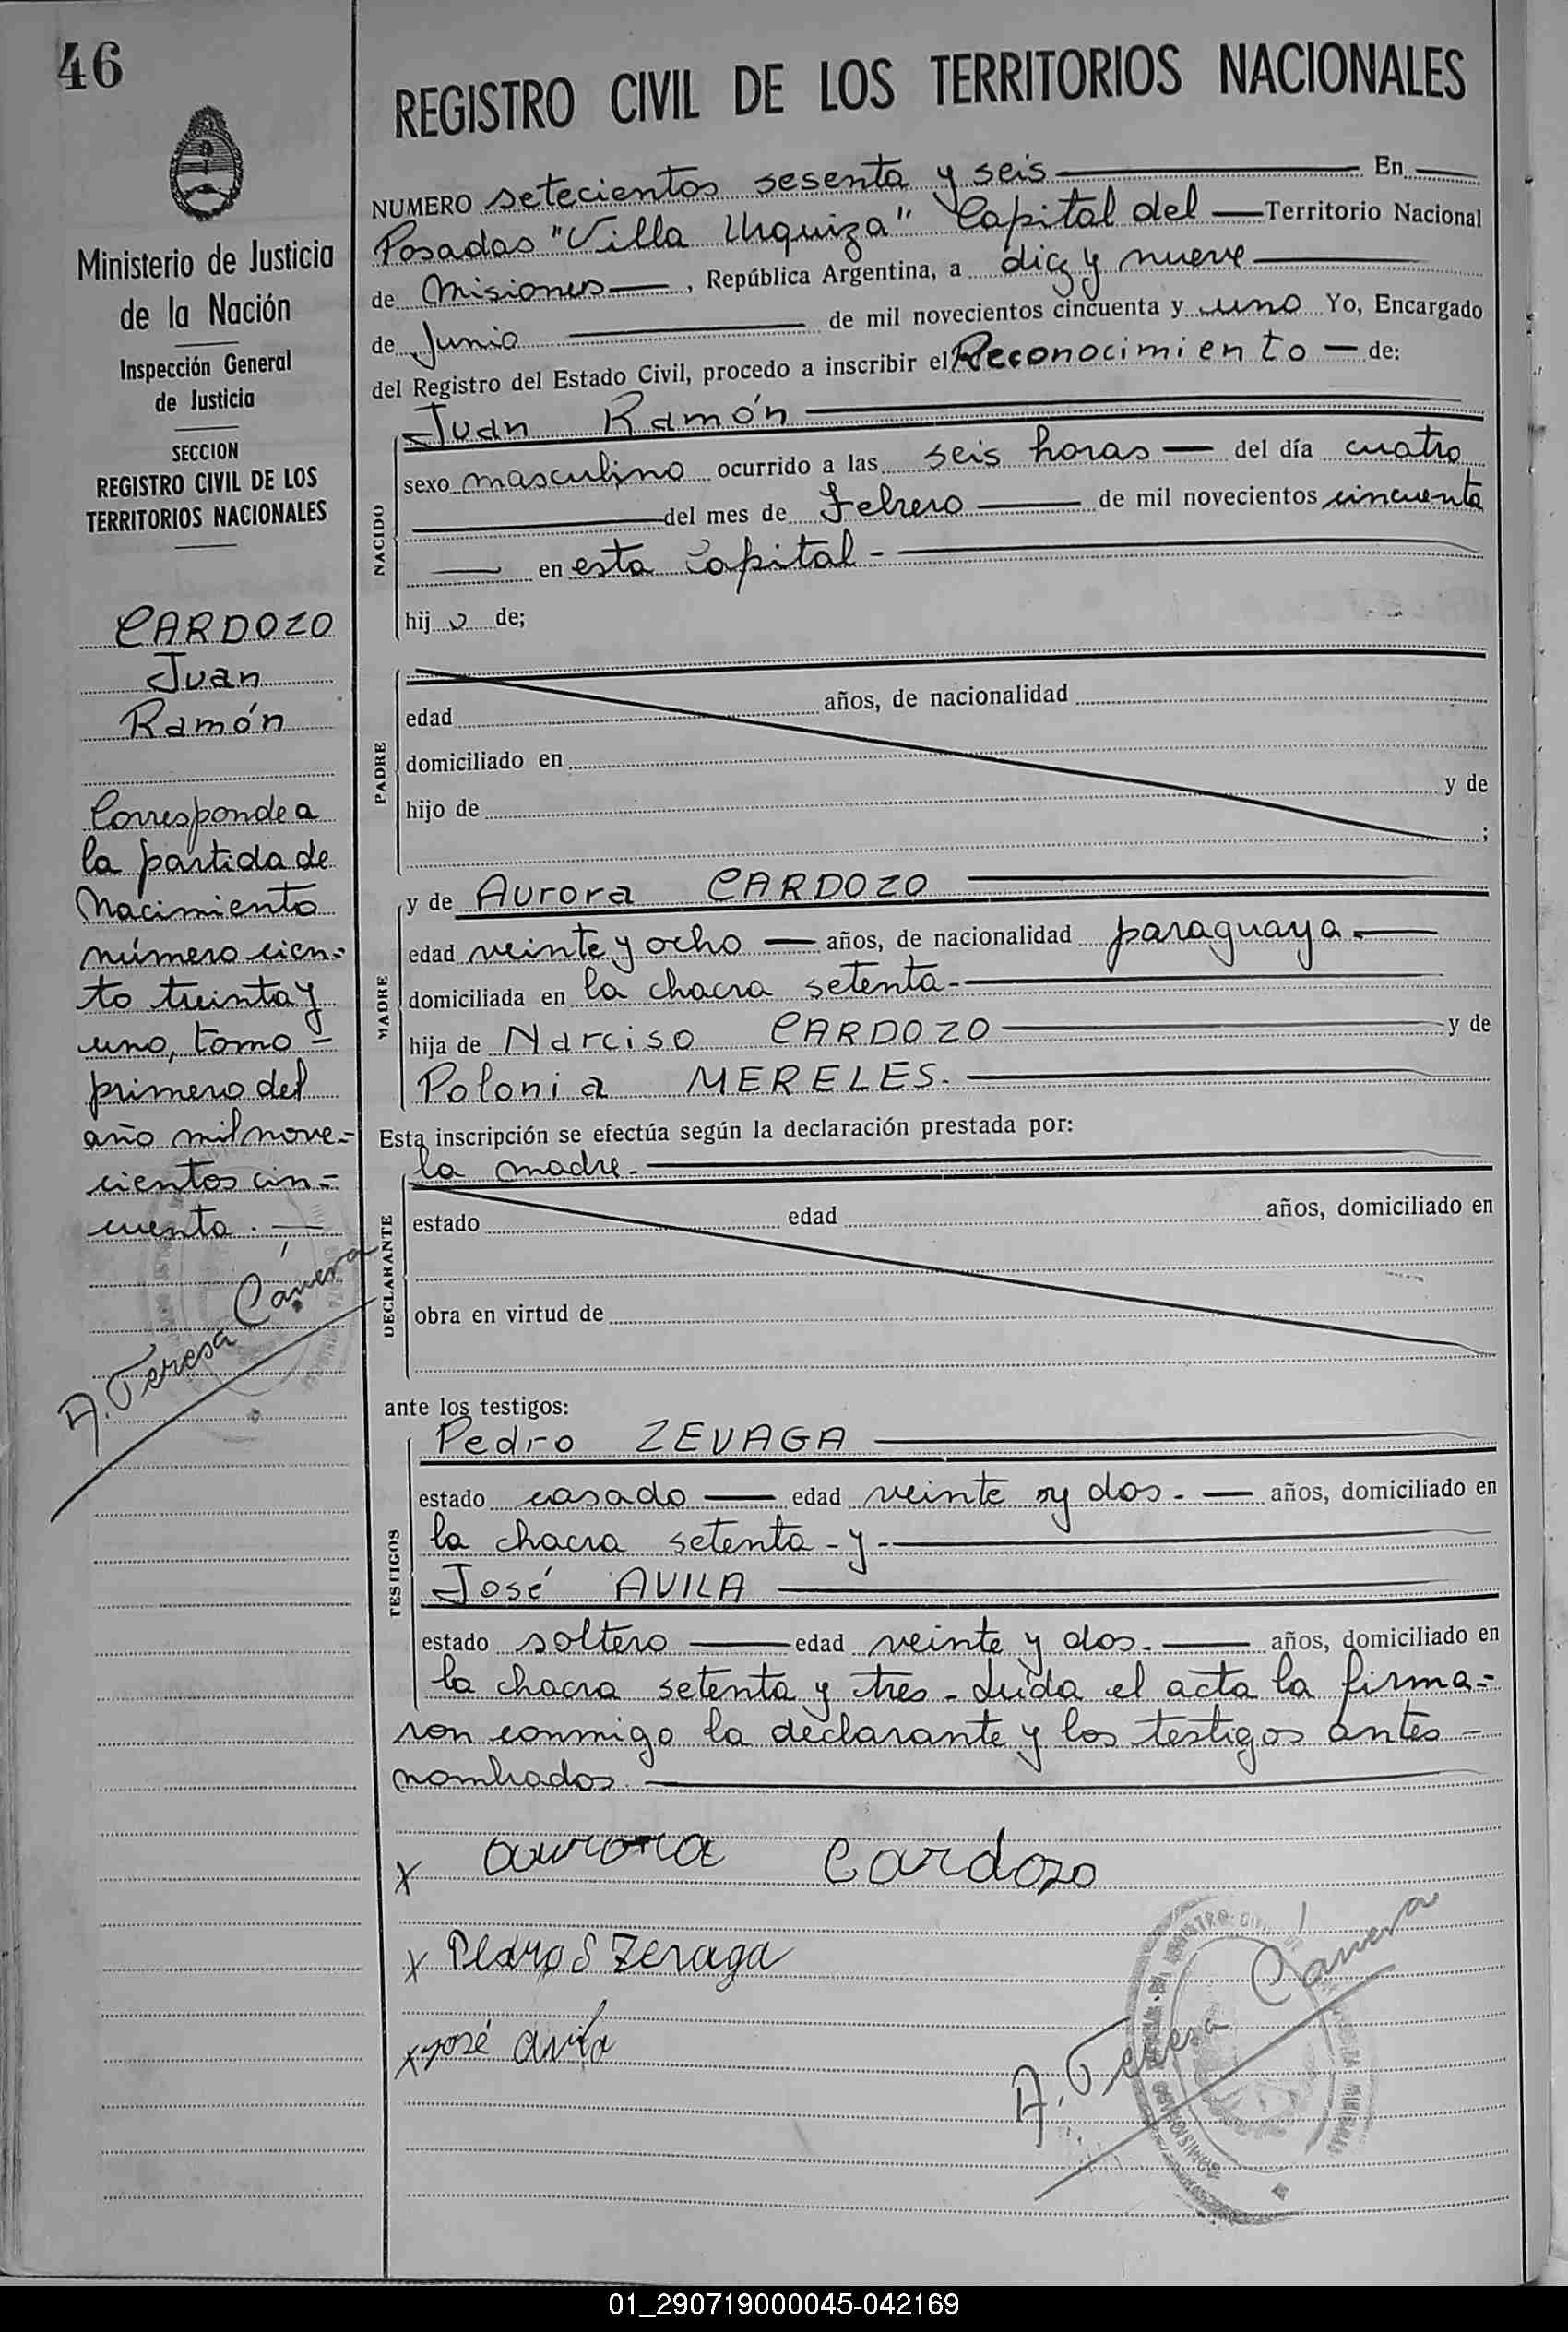 46
REGISTRO CIVIL DE LOS TERRITORIOS NACIONALES
Ministerio de Justicia
de la Nación
Inspección General
de Justicia
SECCION
REGISTRO CIVIL DE LOS
TERRITORIOS NACIONALES
CARDOZO
Juan
Ramón
Corresponde a
la partida de
Nacimiento
número cien-
to treinta y
uno, tomo -
primero del
año mil nove-
cientos cin-
cuenta.
A. Teresa Cánera
NUMERO setecientos sesenta y seis En
Posadas "Villa Urquiza" Capital del Territorio Nacional
de Misiones, República Argentina, a diez y nueve
de Junio de mil novecientos cincuenta y uno Yo, Encargado
del Registro del Estado Civil, procedo a inscribir el Reconocimiento de:
NACIDO
Juan Ramón
sexo masculino ocurrido a las seis horas del día cuatro
del mes de Febrero de mil novecientos cincuenta
en esta Capital -
hijo de;
PADRE
edad años, de nacionalidad
domiciliado en
hijo de y de
;
MADRE
y de Aurora CARDOZO
edad veinte y ocho años, de nacionalidad paraguaya.
domiciliada en la chacra setenta-
hija de Narciso CARDOZO y de
Polonia MERELES.
Esta inscripción se efectúa según la declaración prestada por:
DECLARANTE
la madre.
estado edad años, domiciliado en
obra en virtud de
ante los testigos:
TESTIGOS
Pedro ZEVAGA
estado casado edad veinte y dos. años, domiciliado en
la chacra setenta - y -
José AVILA
estado soltero edad veinte y dos. años, domiciliado en
la chacra setenta y tres - Leída el acta la firma-
ron conmigo la declarante y los testigos antes -
nombrados.
x aurora Cardozo
x Pedro S Zevaga
x José avila
A. Teresa Cánera
01_290719000045-042169